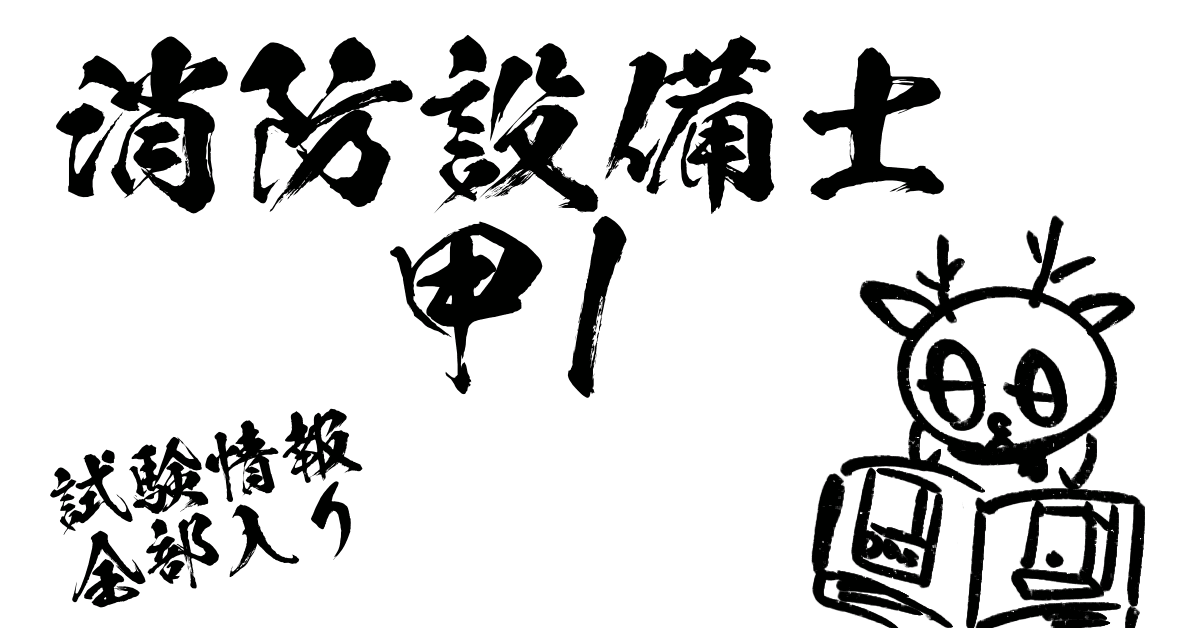 消防設備士
甲1
試験情報
全部入り